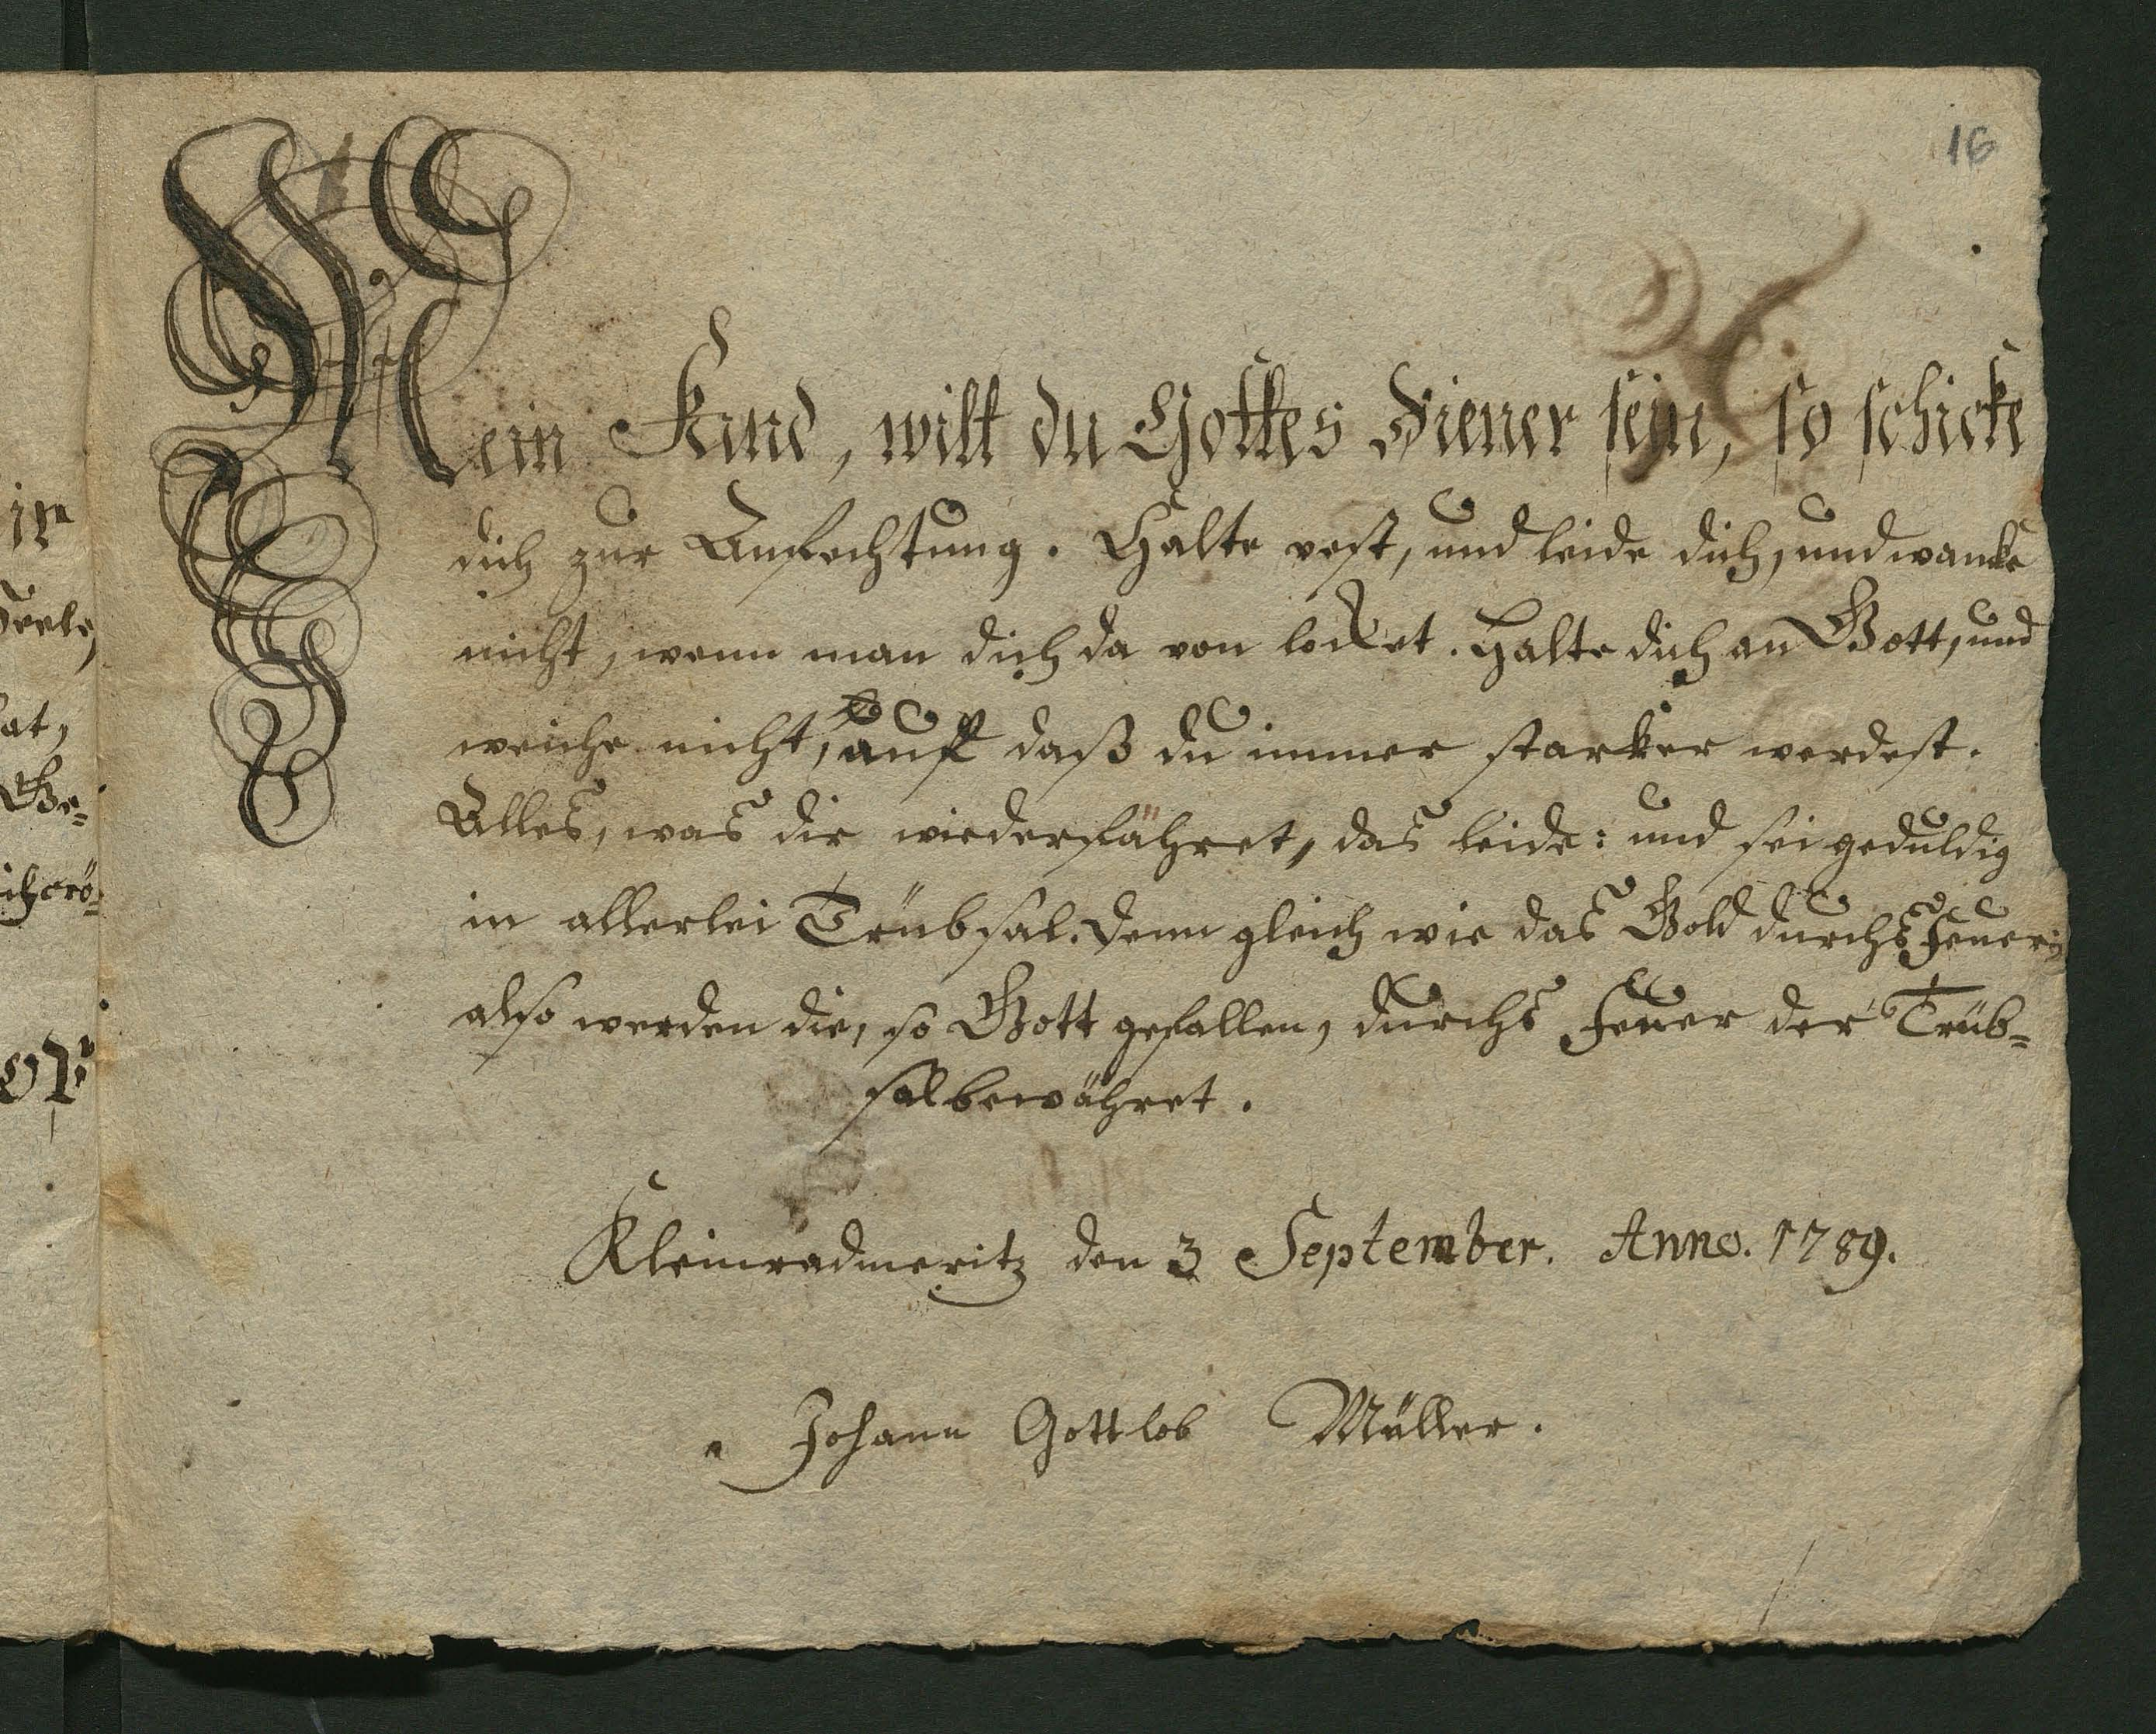 16
Mein Kind, wilt du Gottes Diener sein, so schicke
dich zur Anfechtung. Halte vest, und leide dich, und wanke
nicht, wenn man dich da von locket. Halte dich an Gott, und
weiche nicht, auf daß du immer starker werdest.
Alles, was dir wiederfähret, das leide: und sei geduldig
in allerlei Trübsal. Denn gleich wie das Gold durchs Feuer;
also werden die, so Gott gefallen, durchs Feuer der Trüb=
sal bewähret.
Kleinradmeritz den 3 September. Anno. 1789.
Johann Gottlob Müller.
at,
Ge=